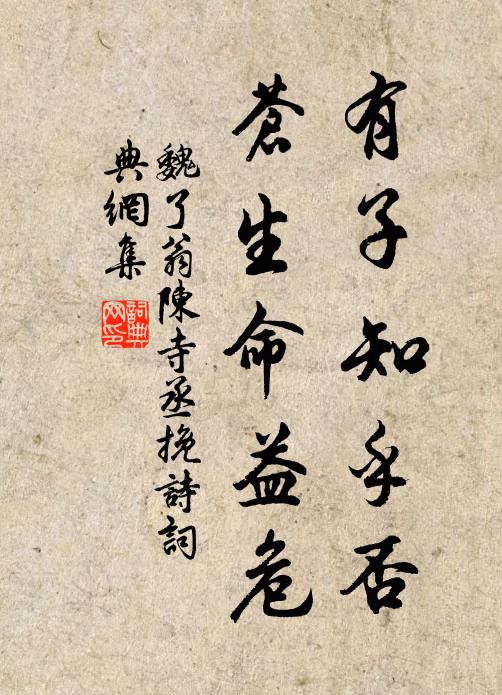 有子知乎否
蒼生命益危
魏了翁陳寺丞挽詩詞
典網集
詞典
网印